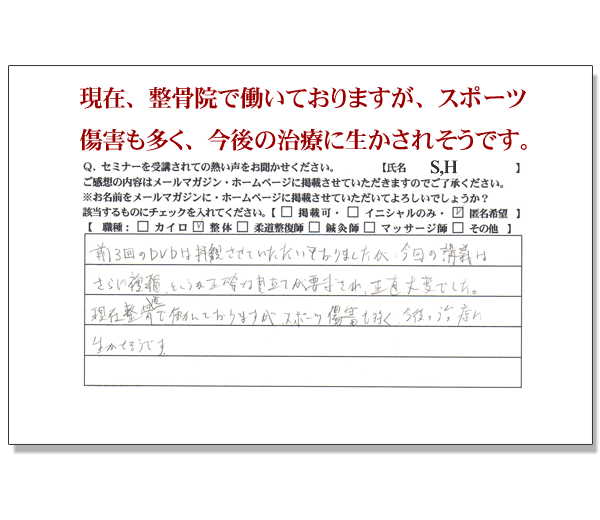 現在、整骨院で働いておりますが、スポーツ
傷害も多く、今後の治療に生かされそうです。
Q. セミナーを受講されての熱い声をお聞かせください。 【氏名 S,H 】
ご感想の内容はメールマガジン・ホームページに掲載させていただきますのでご了承ください。
※お名前をメールマガジンに・ホームページに掲載させていただいてよろしいでしょうか?
該当するものにチェックを入れてください。【 □ 掲載可・ □ イニシャルのみ・ ☑ 匿名希望 】
【 職種: □ カイロ ☑ 整体 □ 柔道整復師 □ 鍼灸師 □ マッサージ師 □ その他 】
前3回のDVDは拝観させていただいておりましたが、今回の講義は
さらに複雑、というか正確な組立てが要求され、正直大変でした。
現在整骨院で働いておりますが、スポーツ傷害も多く、今後の治療に
生かせそうです。